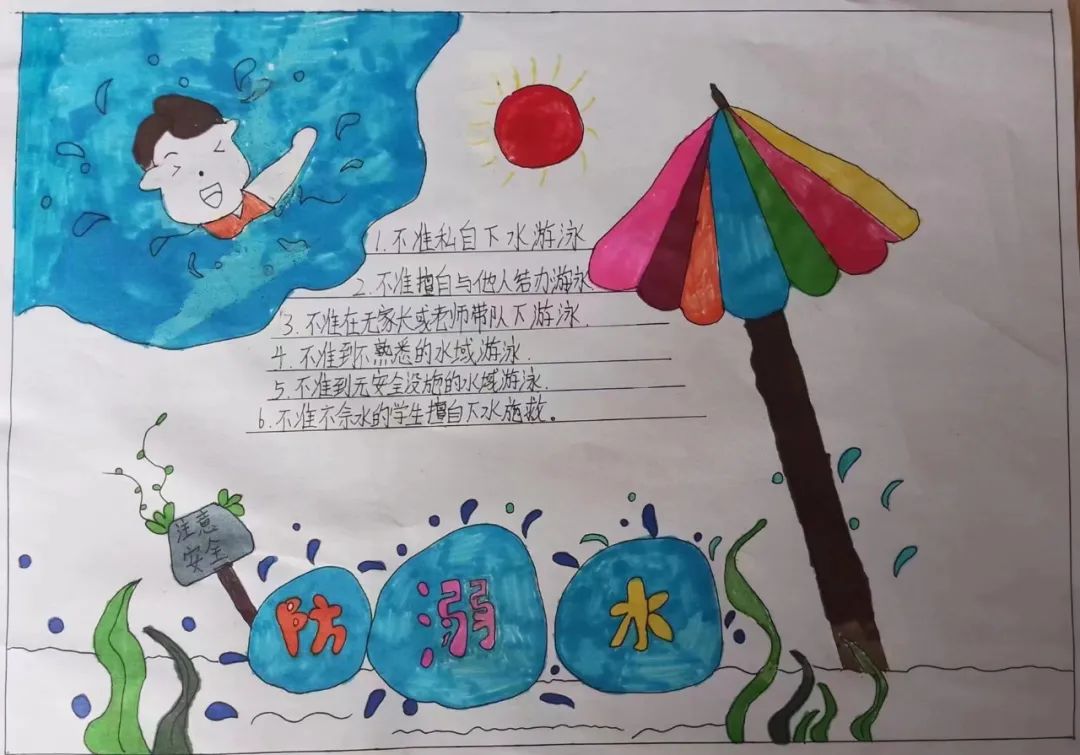 1.不准私自下水游泳
2.不准擅自与他人结办游泳.
3.不准在无家长或老师带队下游泳.
4.不准到不熟悉的水域游泳.
5.不准到无安全设施的水域游泳.
6.不准不佘水的学生擅自下水施救。
注意
安全
防溺水